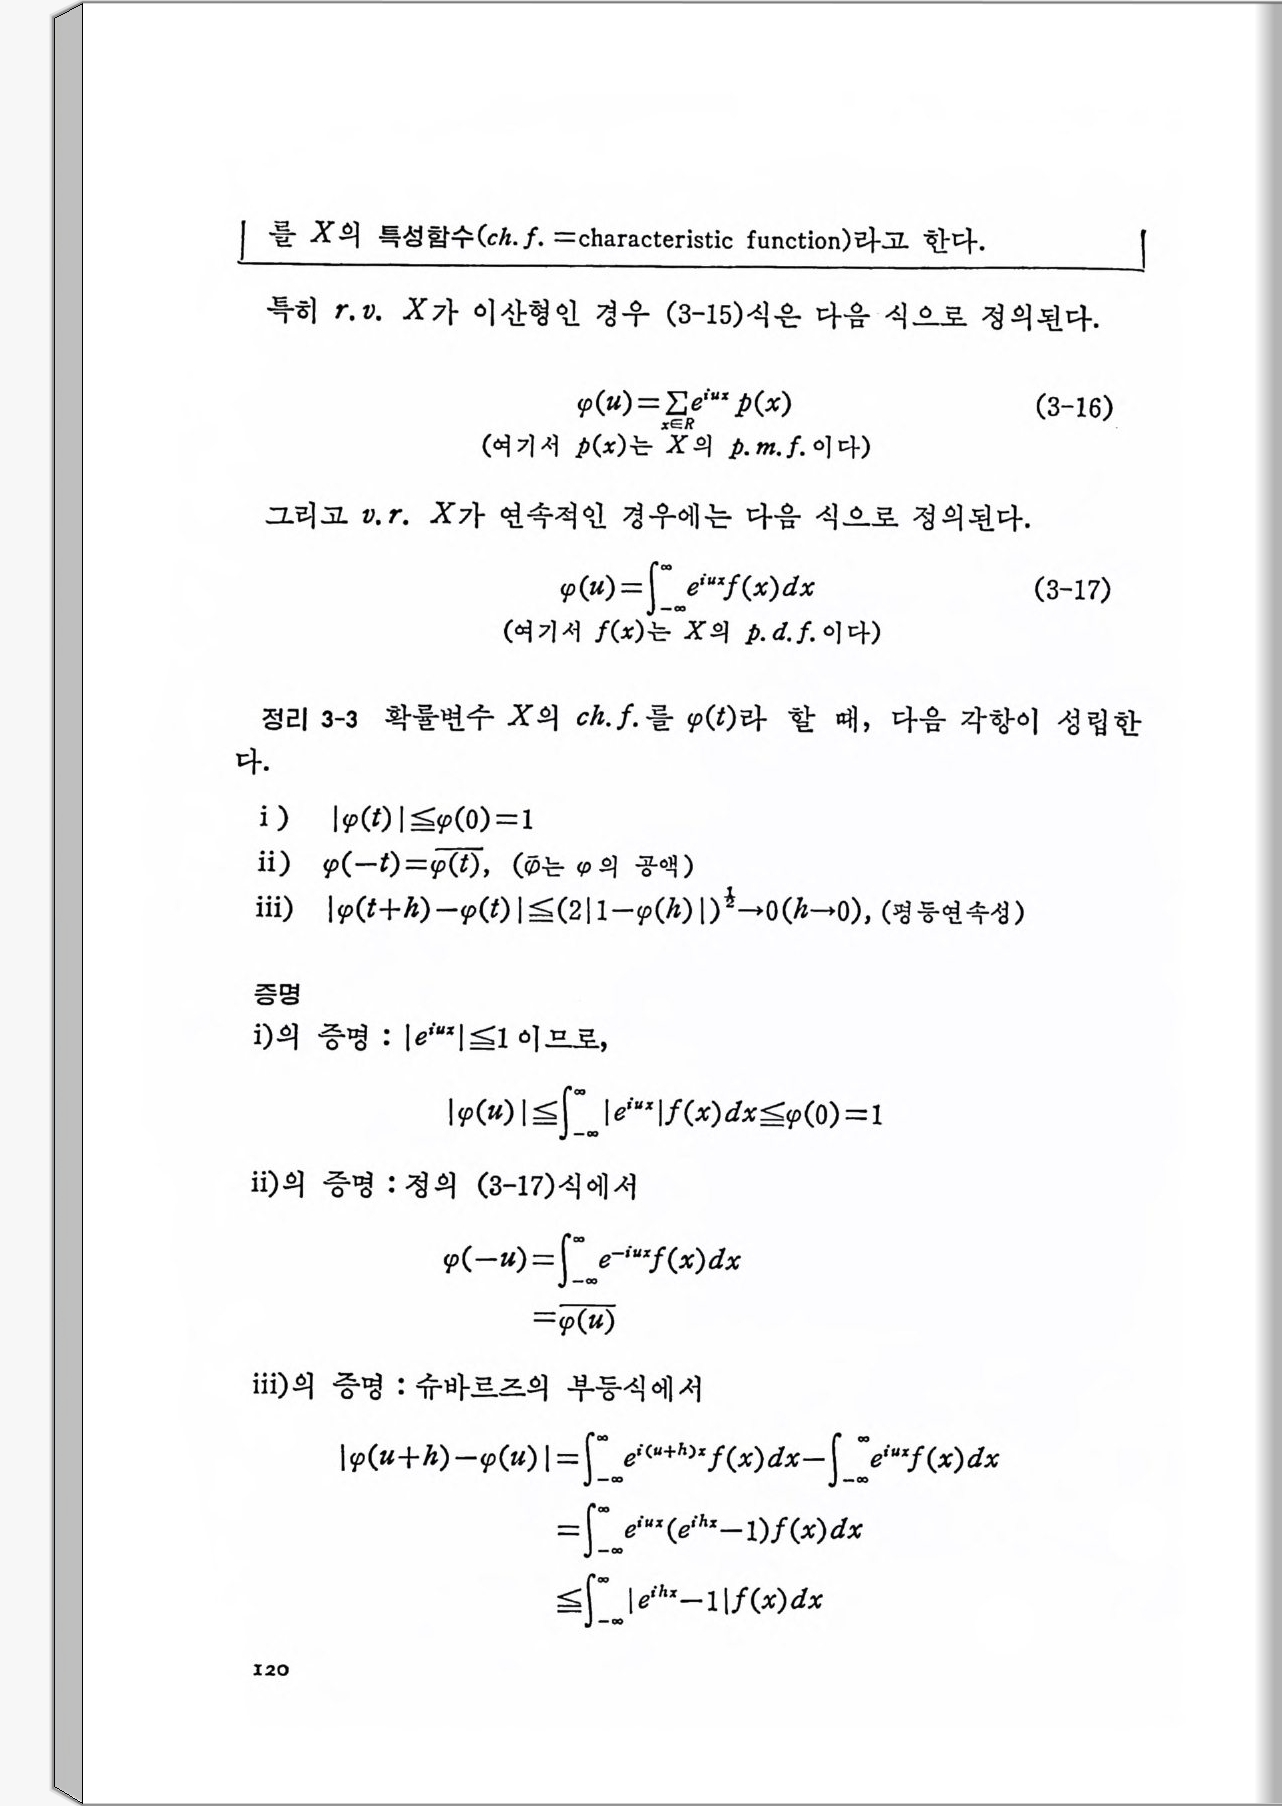 를 X의 특성함수(ch. f. =characteristic function)라고 한다.
특히 r. v. X가 이산형인 경우 (3-15)식은 다음 식으로 정의된다.
φ(u)=∑e^{iux} p(x) (3-16)
x∈R
(여기서 p(x)는 X의 p. m. f. 이다)
그리고 v. r. X가 연속적인 경우에는 다음 식으로 정의된다.
φ(u)=∫_{-∞}^{∞} e^{iux}f(x)dx (3-17)
(여기서 f(x)는 X의 p. d. f. 이다)
정리 3-3 확률변수 X의 ch. f. 를 φ(t)라 할 때, 다음 각항이 성립한
다.
i) |φ(t)|≦φ(0)=1
ii) φ(-t)=\overline{φ(t)}, (φ̄는 φ의 공액)
iii) |φ(t+h)-φ(t)|≦(2|1-φ(h)|)^{1/2}→0(h→0), (평등연속성)
증명
i)의 증명 : |e^{iux}|≦1 이므로,
|φ(u)|≦∫_{-∞}^{∞} |e^{iux}|f(x)dx≦φ(0)=1
ii)의 증명 : 정의 (3-17)식에서
φ(-u)=∫_{-∞}^{∞} e^{-iux}f(x)dx
=\overline{φ(u)}
iii)의 증명 : 슈바르즈의 부등식에서
|φ(u+h)-φ(u)|=∫_{-∞}^{∞} e^{i(u+h)x}f(x)dx-∫_{-∞}^{∞} e^{iux}f(x)dx
=∫_{-∞}^{∞} e^{iux}(e^{ihx}-1)f(x)dx
≦∫_{-∞}^{∞} |e^{ihx}-1|f(x)dx
120